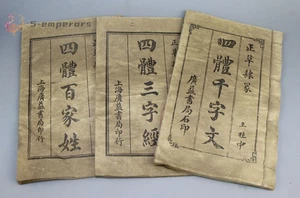 S-emperors
四體百家姓
上海廣益書局印行
正草
四體三字經
上海廣益書局印行
正草隸篆
四體千字文
廣益書局石印